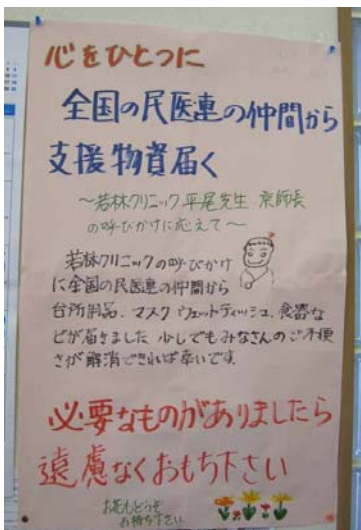 心をひとつに
全国の民医連の仲間から
支援物資届く
〜若林クリニック 平尾先生、京師長
の呼びかけに応えて〜
若林クリニックの呼びかけ
に全国の民医連の仲間から
台所用品、マスク ウェットティッシュ、食器な
どが届きました 少しでもみなさんのご不便
さが解消できれば幸いです。
必要なものがありましたら
遠慮なくおもち下さい
お花もどうぞ
お持ち下さい